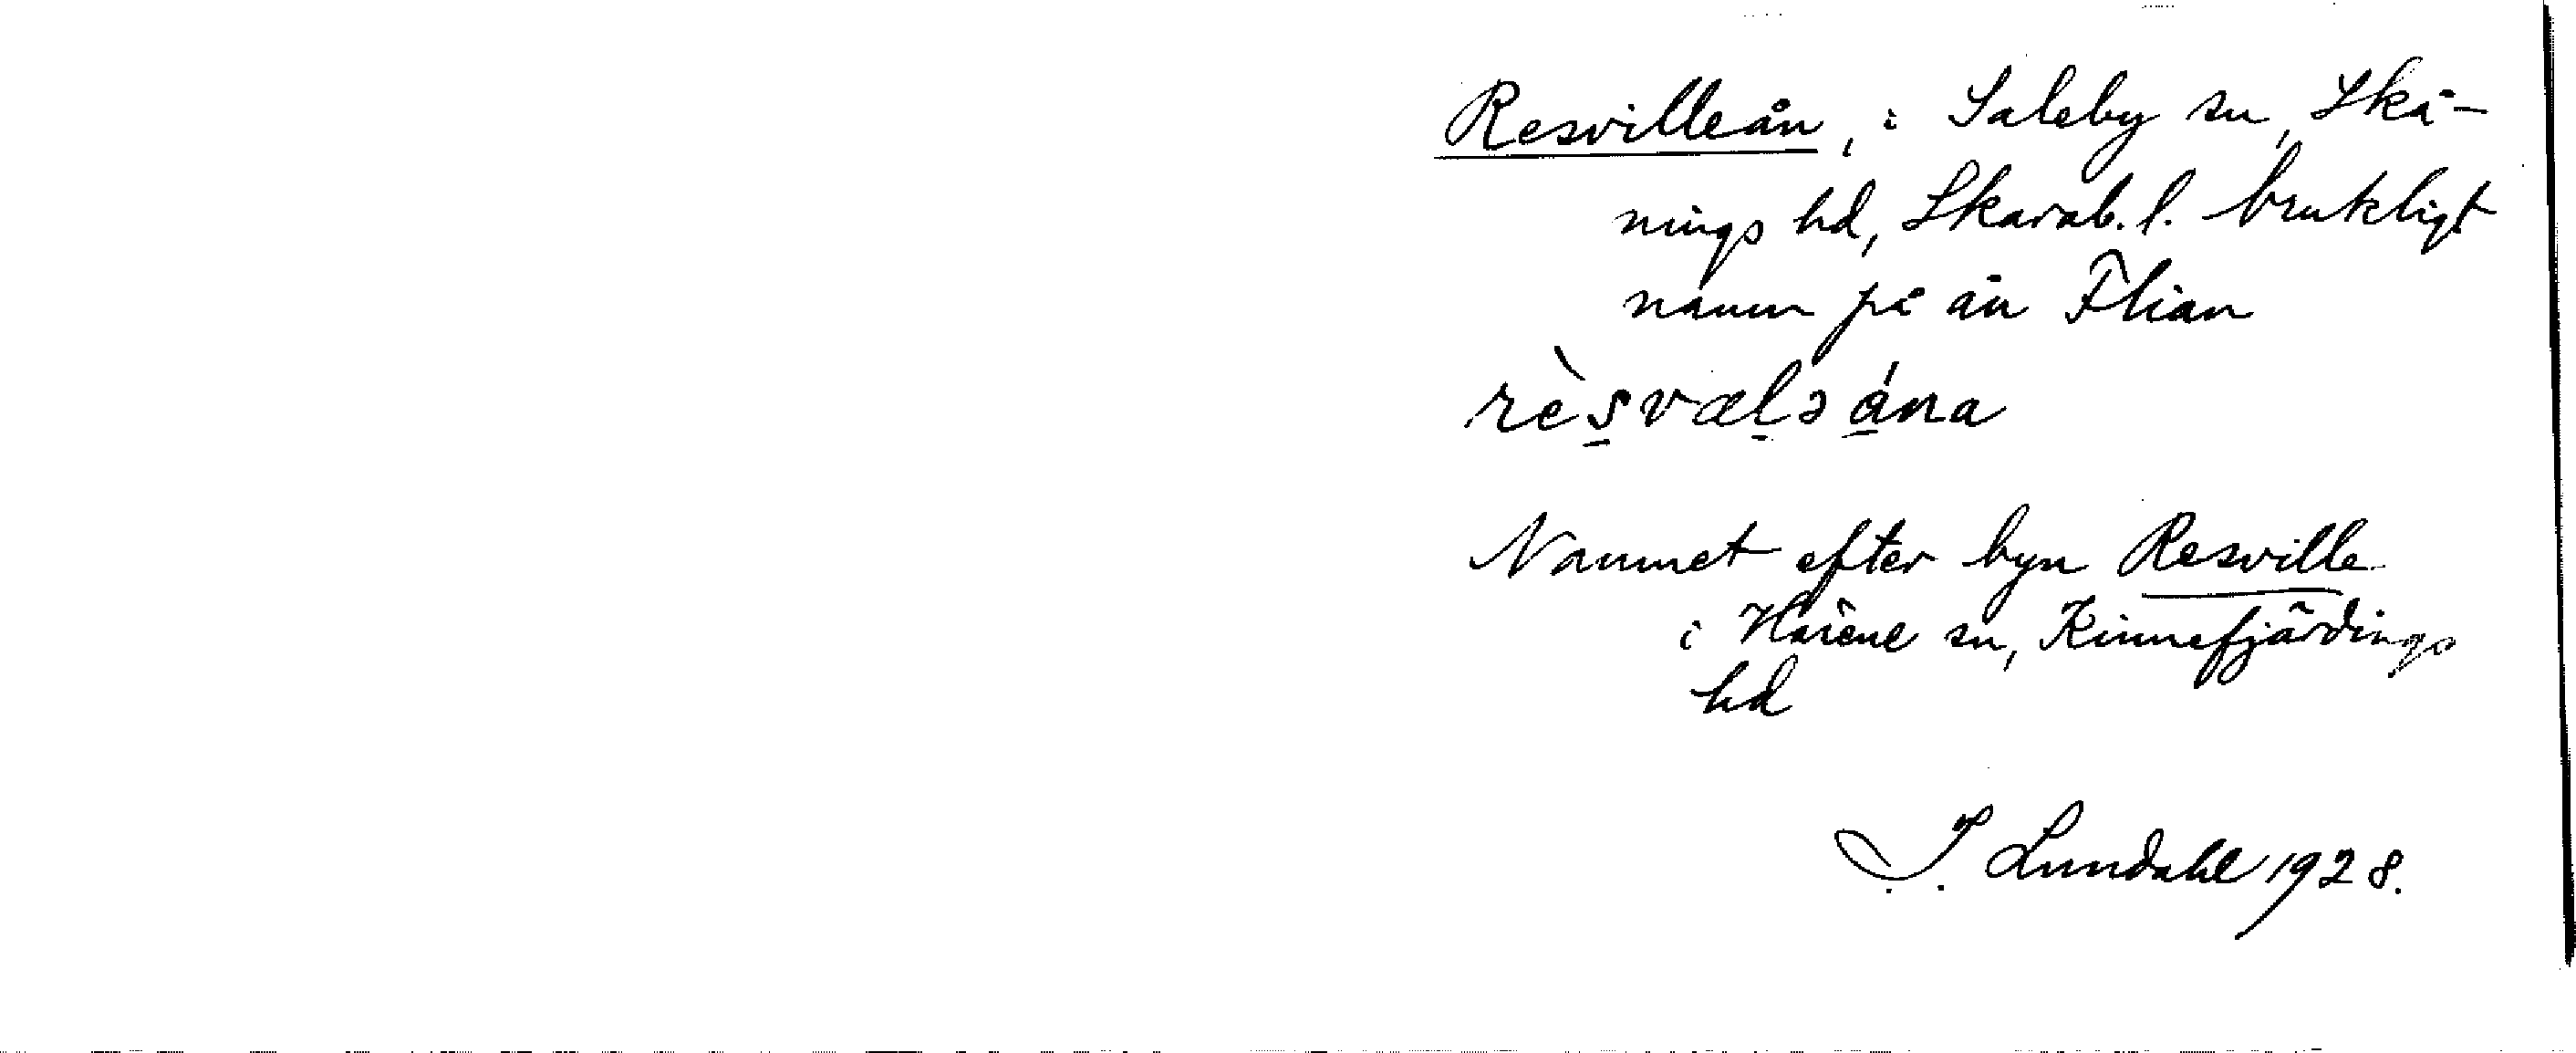 Resvilleån, i Saleby sn, Skå-
nings hd, Skarab. l. brukligt
namn på ån Flian
rès̠væl̠ə á̠na
Namnet efter byn Resville
i Härene sn, Kinnefjärdings
hd
I. Lundahl 1928.